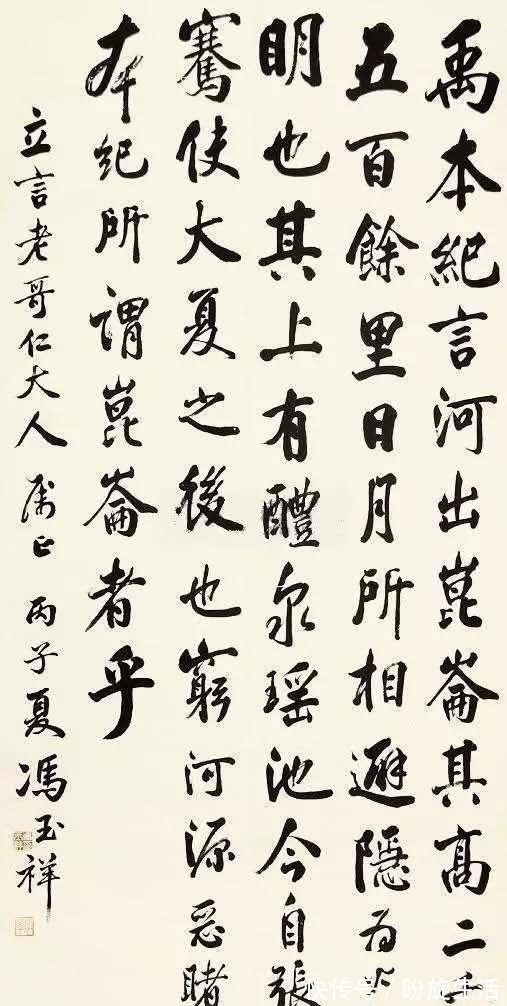 禹本紀言河出崑崙其高二千
五百餘里日月所相避隱為光
明也其上有醴泉瑶池今自張
騫使大夏之後也窮河源惡睹
本紀所謂崑崙者乎
立言老哥仁大人 属正 丙子夏 馮玉祥
快传号/盼旋生活